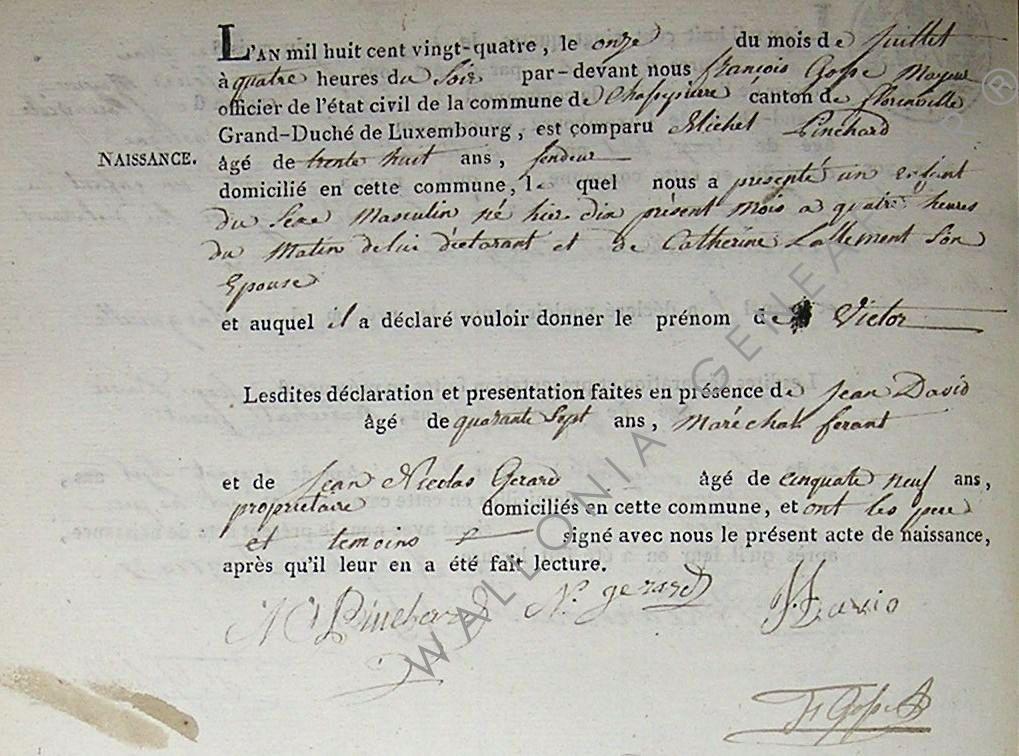 L'AN mil huit cent vingt-quatre, le onze du mois de Juillet
à quatre heures du Soir par-devant nous françois Gosse Mayeur
officier de l'état civil de la commune de Chassepierre canton de florenville
Grand-Duché de Luxembourg, est comparu Michel Pinchard
NAISSANCE.
âgé de trente huit ans, fendeur
domicilié en cette commune, le quel nous a présenté un enfant
du Sexe Masculin né hier dix présent mois a quatre heures
du Matin de lui déclarant et de Catherine Lallement Son
Epouse
et auquel il a déclaré vouloir donner le prénom de Victor
Lesdites déclaration et presentation faites en présence de Jean David
âgé de quarante Sept ans, Maréchal ferant
et de Jean Nicolas Gerard âgé de Cinquate neuf ans,
propriétaire domiciliés en cette commune, et ont les pere
et temoins signé avec nous le présent acte de naissance,
après qu'il leur en a été fait lecture.
M Pinchard N. gerard J David
F Gosse
WALLONIA GENEA
®